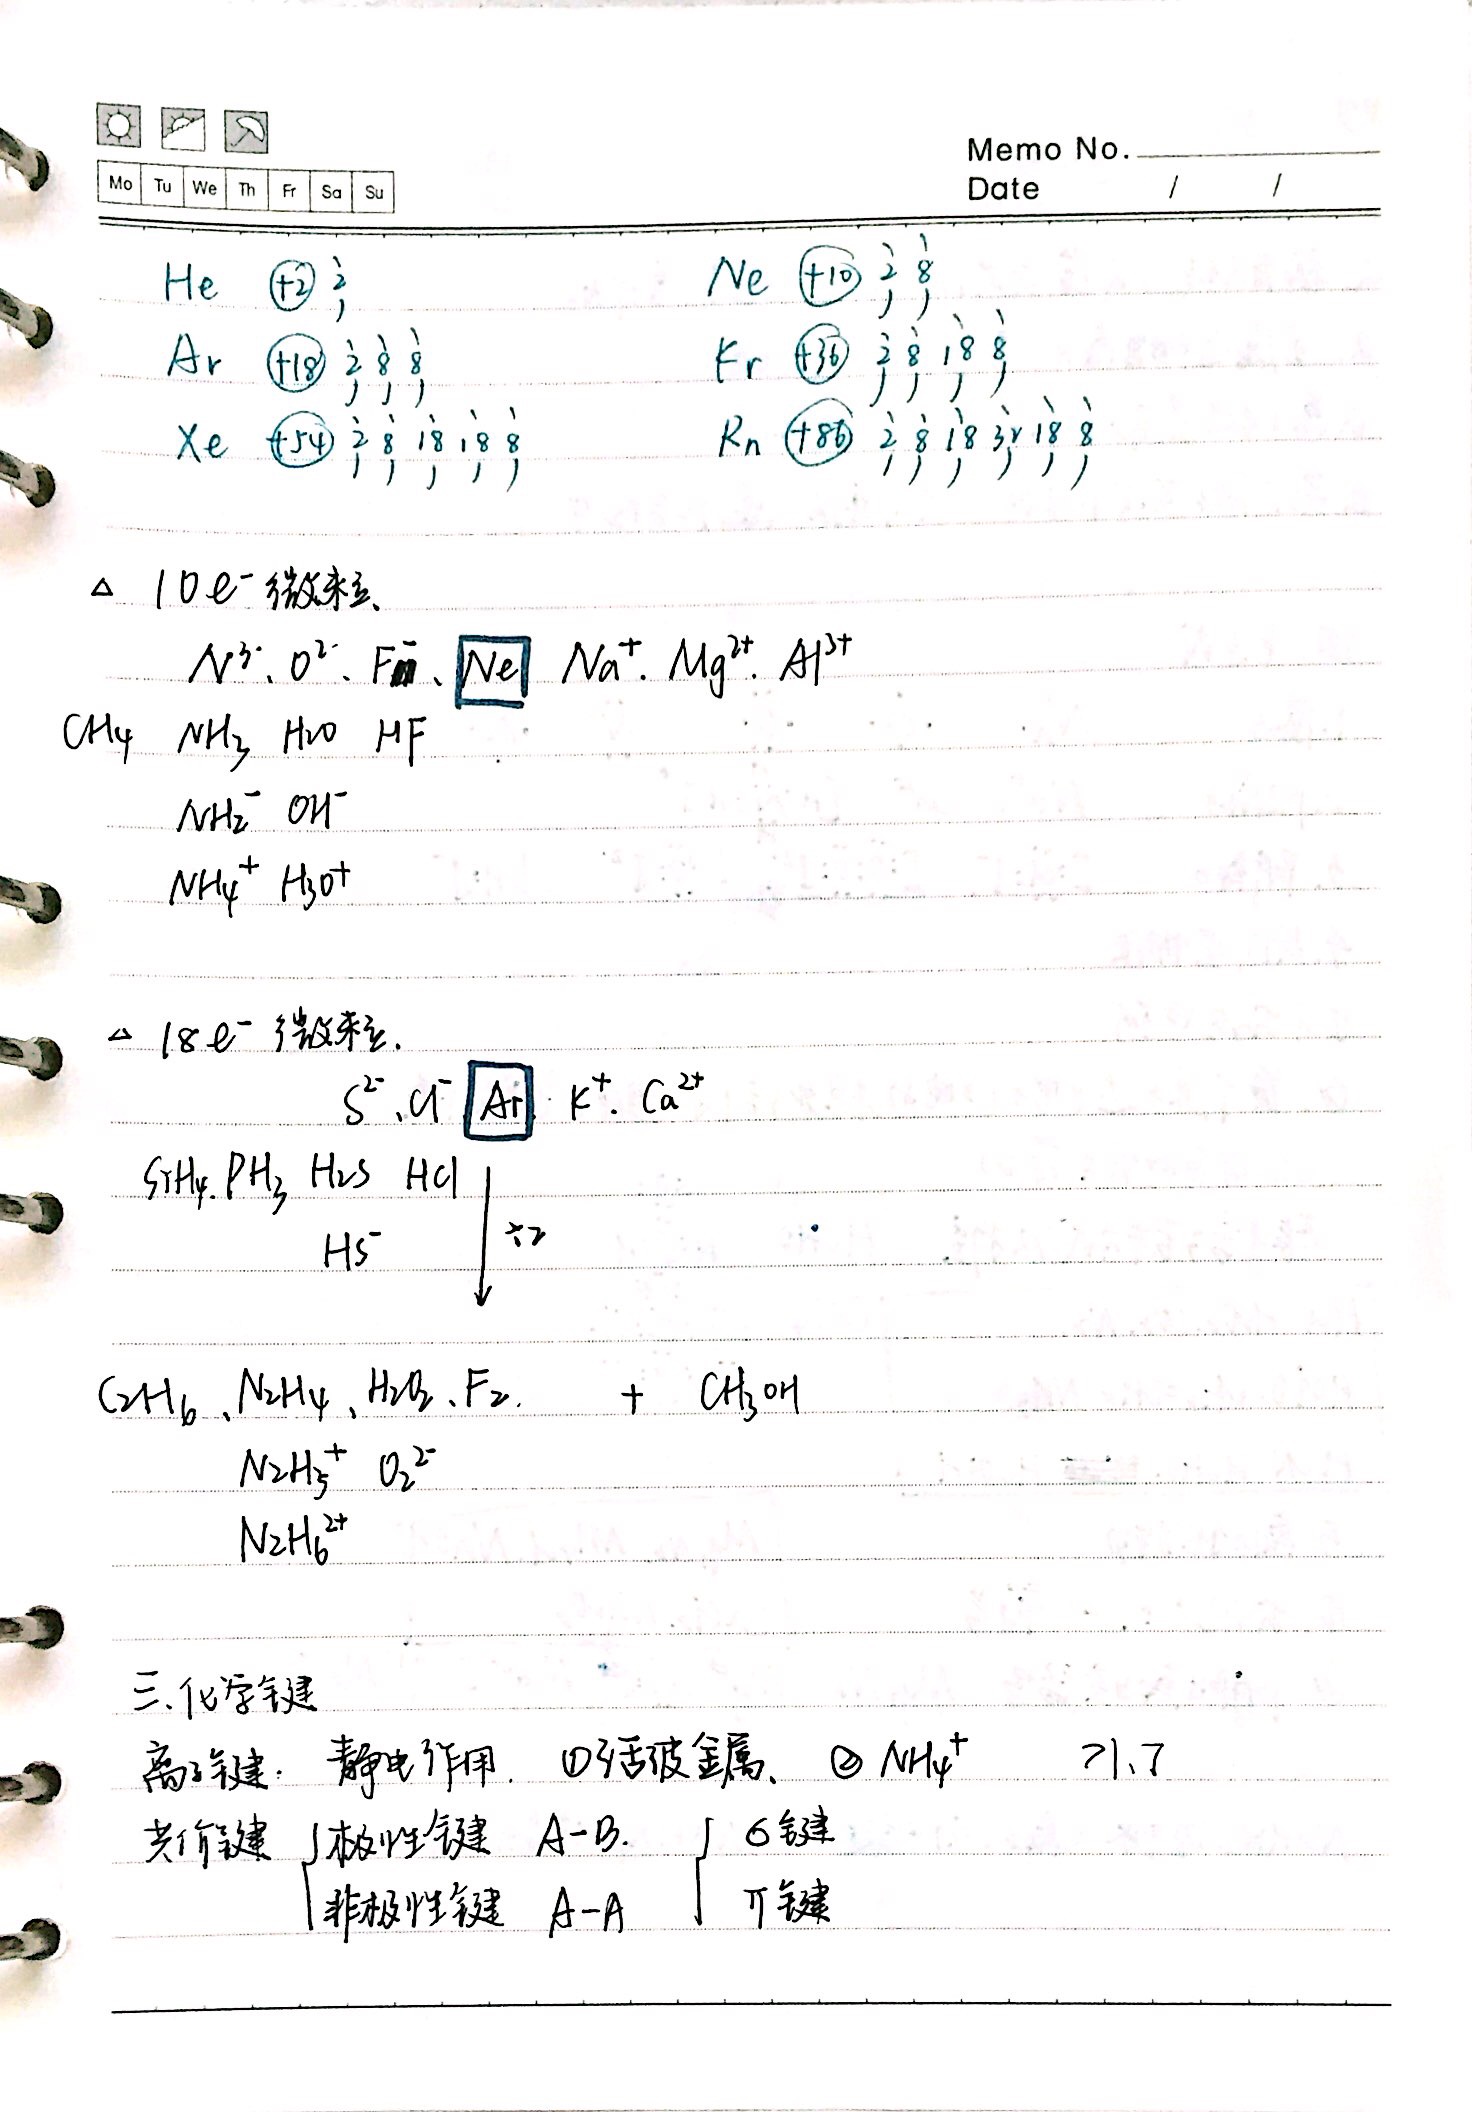 Memo No.
Mo Tu We Th Fr Sa Su
Date / /
He +2 2 Ne +10 2 8
Ar +18 2 8 8 Kr +36 2 8 18 8
Xe +54 2 8 18 18 8 Rn +86 2 8 18 32 18 8
△ 10e⁻微粒、
N³⁻、O²⁻、F⁻、Ne Na⁺. Mg²⁺. Al³⁺
CH₄ NH₃ H₂O HF
NH₂⁻ OH⁻
NH₄⁺ H₃O⁺
△ 18e⁻微粒.
S²⁻、Cl⁻ Ar. K⁺. Ca²⁺
SiH₄. PH₃ H₂S HCl
HS⁻ ÷2
C₂H₆、N₂H₄、H₂O₂、F₂. + CH₃OH
N₂H₅⁺ O₂²⁻
N₂H₆²⁺
三、化学键
离子键: 静电作用. ①活泼金属、 ②NH₄⁺ >1.7
共价键 极性键 A-B. σ键
非极性键 A-A π键